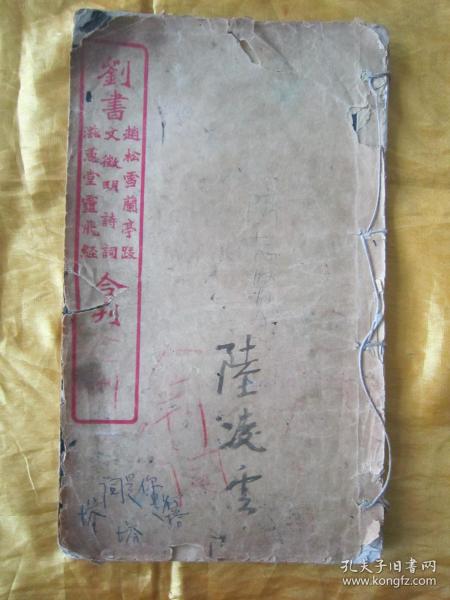 劉書
趙松雪蘭亭跋
文徵明詩詞
滋蕙堂靈飛經
合刊
陸凌雲
孔夫子旧书网
www.kongfz.com